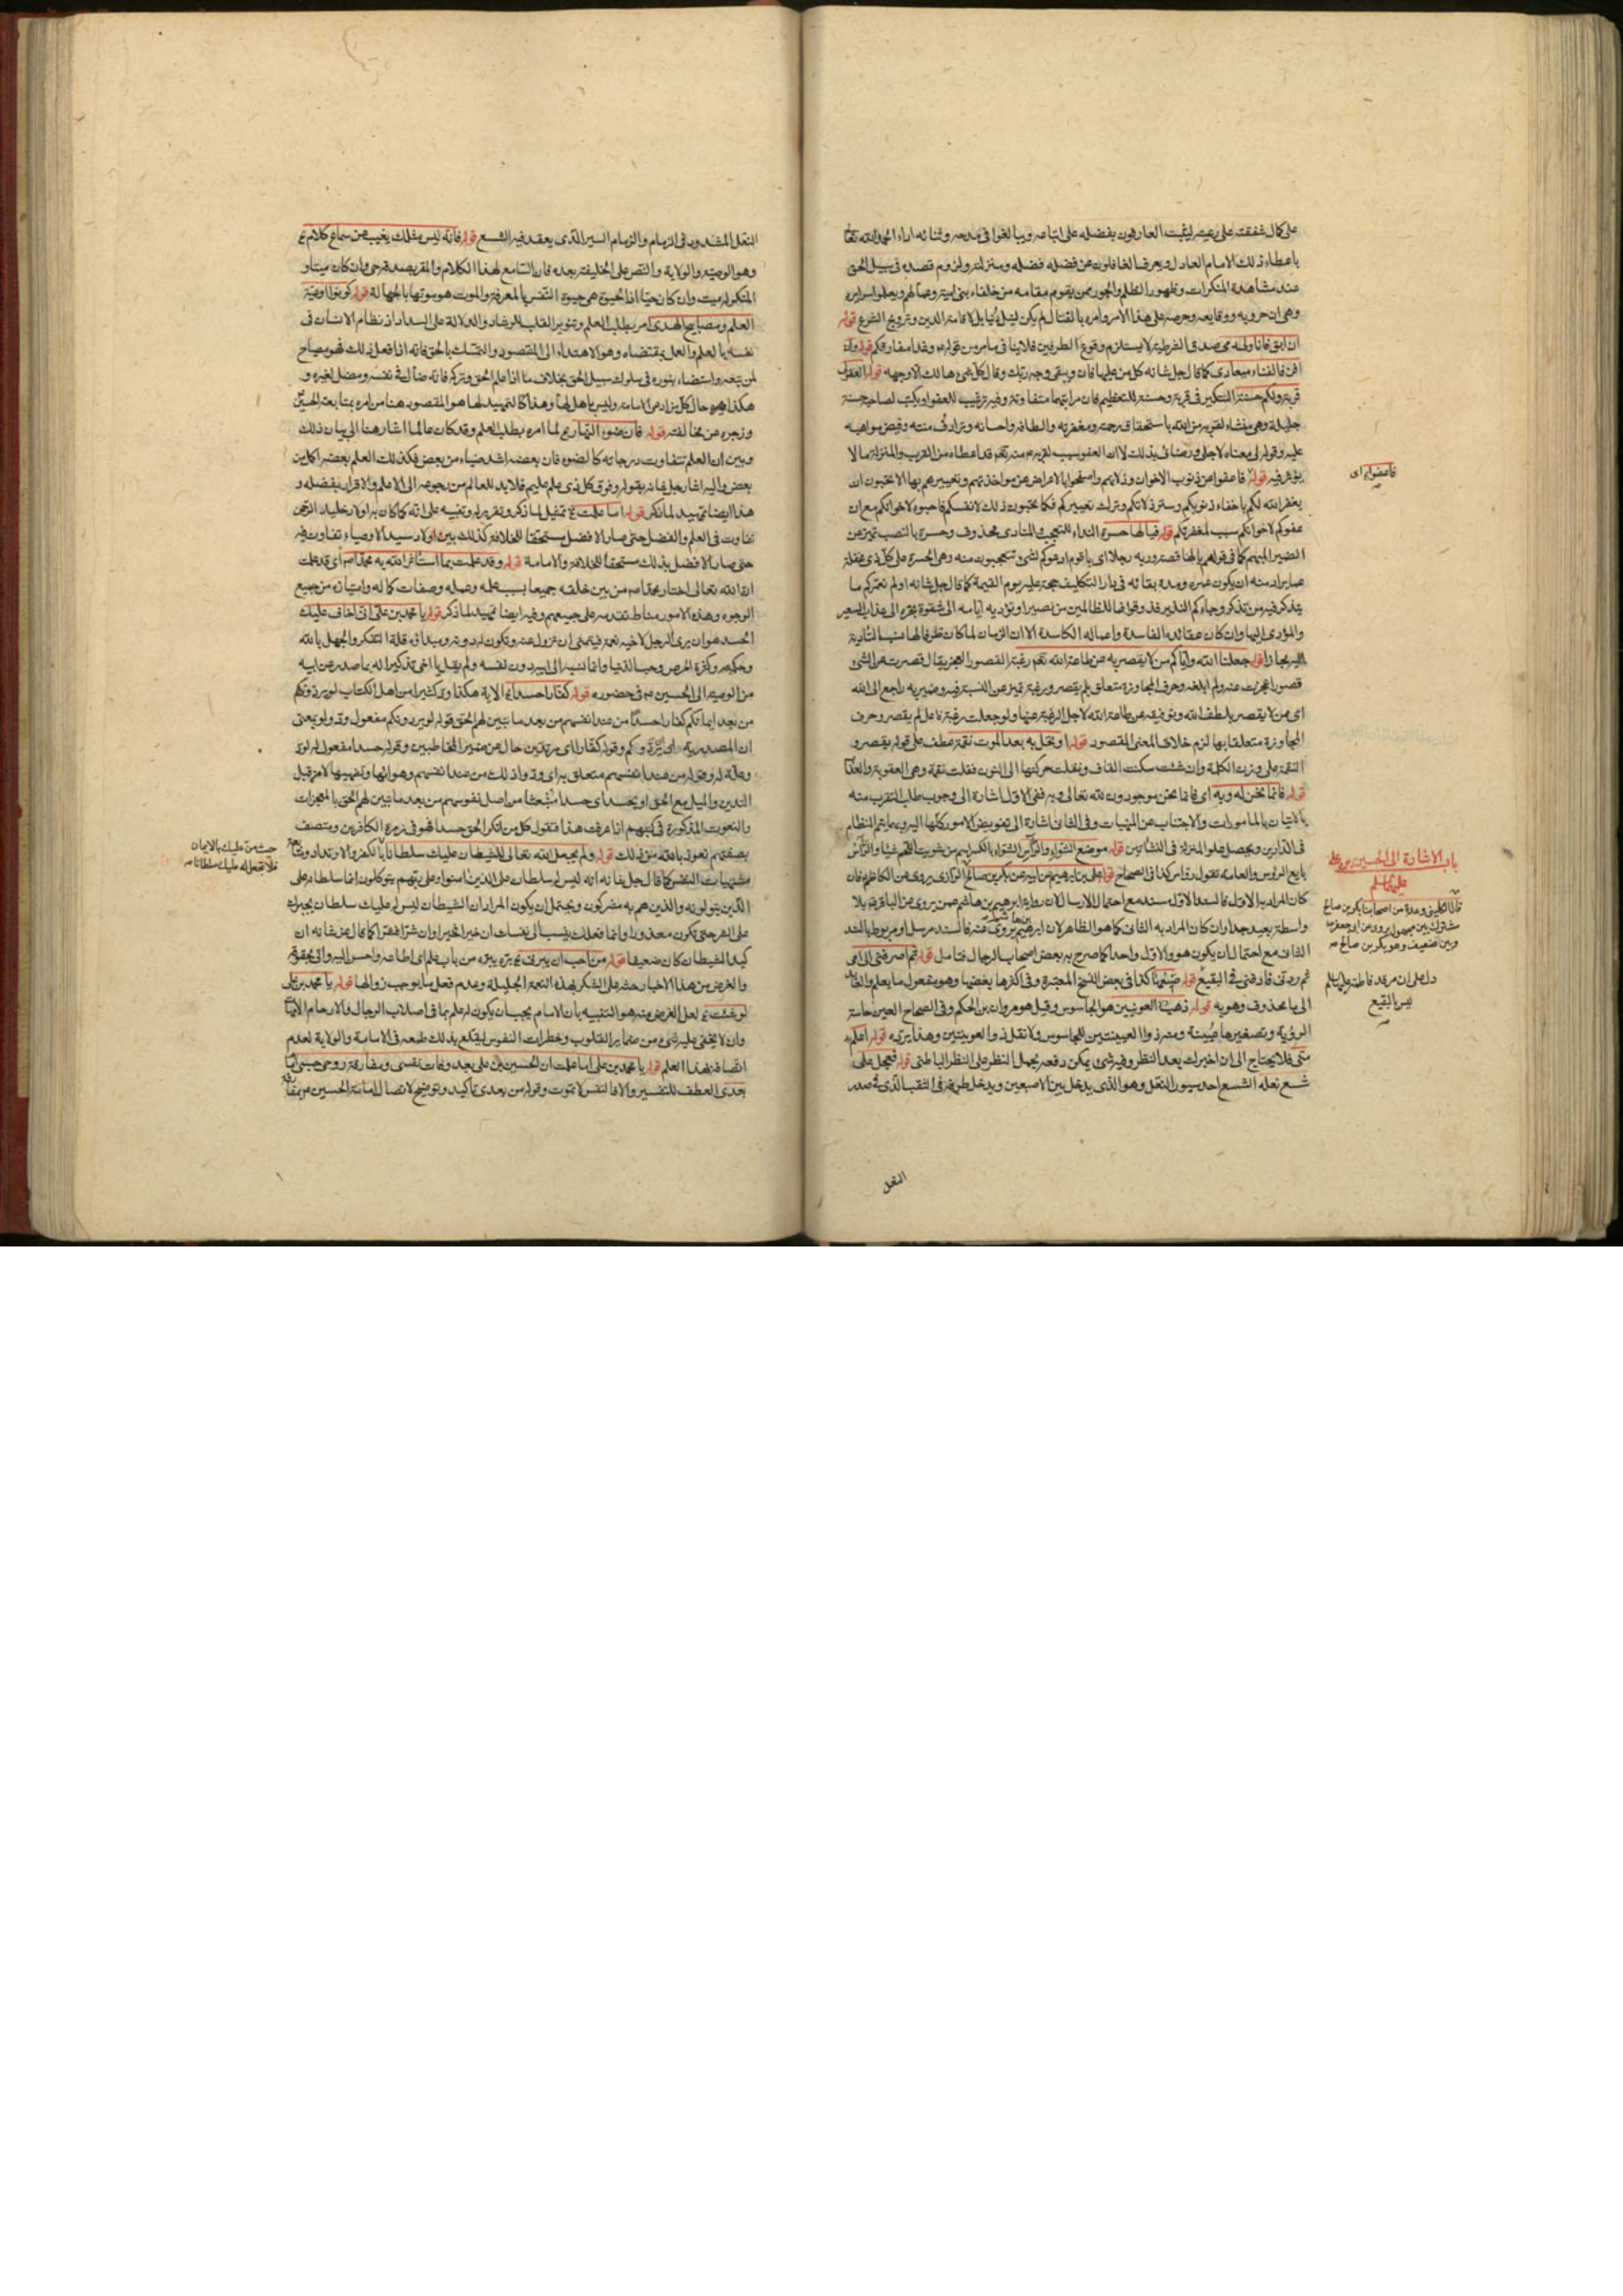 على كمال شفقته على رعيته ليثبت العارفون بفضله على اتباعه ويبالغوا في مدحه وثنائه اداء لحمد الله تعالى
باعطاء ذلك الامام العادل ويعرف الغافلون عن فضله فضله ومنزلته ولزوم قصده في سبيل الحق
عند مشاهدة المنكرات وظهور الظلم والجور ممن يقوم مقامه من خلفاء بني امية وعمالهم ويعلموا سرايره
وهي ان حروبه ووقايعه وحرصه على هذا الامر وامره بالقتال لم يكن لنيل دنيا بل لاقامة الدين وترويج الشرع قوله
ان ابق فانا ولي دمي صدق الشرطية لا يستلزم وقوع الطرفين فلا ينافي ما مر من قوله وغدا مفارقكم قوله وان
افن فالفناء ميعادي كما قال جل شانه كل من عليها فان ويبقى وجه ربك وقال كل شيء هالك الا وجهه قوله العفو لي
قربة ولكم حسنة التنكير في قربة وحسنة للتعظيم فان مراتبهما متفاوتة وفيه ترغيب للعفو او يكتب لصاحبه حسنة
جليلة وهي منشاء لقربه من الله باستحقاق رحمته ومغفرته والطافه واحسانه وترادف مننه وفيض مواهبه
عليه وقوله لي معناه لاجلي ورضائي بذلك لا ان العفو سبب لقربه منه تعالى قد اعطاه من القرب والمنزلة ما لا
يؤثر فيه قوله فاعفوا عن ذنوب الاخوان وزلاتهم واصفحوا بالاعراض عن مواخذتهم وتعييرهم بها الا تحبون ان
يغفر الله لكم باخفاء ذنوبكم وستر زلاتكم وترك تعييركم فكما تحبون ذلك لانفسكم فاحبوه لاخوانكم مع ان
عفوكم لاخوانكم سبب لمغفرتكم قوله فيا لها حسرة النداء للتعجب والمنادى محذوف وحسرة بالنصب تميز عن
الضمير المبهم كما في قولهم يا لها قصة وربه رجلا اي يا قوم ادعوكم لشيء تتعجبون منه وهي الحسرة على كل ذي غفلة
يتذكر فيه من تذكر وجاءكم النذير فذوقوا فما للظالمين من نصير او تؤديه ايامه الى شقوة تجره الى عذاب السعير
والمؤدي اليها وان كان عقائده الفاسدة واعماله الكاسدة الا ان الزمان لما كان ظرفا لها نسب التادية
اليه مجازا قوله جعلنا الله واياكم من لا يقصر به عن طاعة الله تعالى رغبة القصور العجز يقال قصرت عن الشيء
قصورا عجزت عنه ولم ابلغه وحرف المجاوزة متعلق بلم يقصر ورغبة تميز عن النسبة فيه وضمير به راجع الى الله
اي ممن لا يقصر بلطف الله وتوفيقه عن طاعة الله لاجل الرغبة عنها ولو جعلت رغبة فاعل لم يقصر وحرف
المجاوزة متعلقا بها لزم خلاف المعنى المقصود قوله او تحل به بعد الموت نقمة عطف على قوله يقصر و
النقمة على وزن الكلمة وان شئت سكنت القاف ونقلت حركتها الى النون فقلت نقمة وهي العقوبة والعذاب
قوله فانما نحن له وبه اي فانما نحن موجودون لله تعالى وبه ففي الاول اشارة الى وجوب طلب التقرب منه
بالاتيان بالمامورات والاجتناب عن المنهيات وفي الثاني اشارة الى تفويض الامور كلها اليه وبهما يتم النظام
في الدارين ويحصل علو المنزلة في النشاتين قوله موضع الشواء والرأس
بايع الرؤس والعامة تقول رواس كذا في الصحاح قوله علي بن ابرهيم عن ابيه عن بكر بن صالح
الثاني مع احتمال ان يكون هو والاول واحدا كما صرح به بعض اصحاب الرجال فتامل قوله ثم اصرفني الى امي
ثم ردني فادفني في البقيع
الى ما محذوف وهو به قوله ذهبت العوينين هو الجاسوس وقيل هو مروان بن الحكم وفي الصحاح العين حاسة
الرؤية وتصغيرها عيينة ومنه ذو العيينتين للجاسوس ولا تقل ذو العوينتين
مني فلا يحتاج الى ان اخبرك بعد النظر وفيه شيء يمكن دفعه بحمل النظر على النظر الباطني قوله فعجل على
شسع نعله الشسع احد سيور النعل وهو الذي يدخل بين الاصبعين ويدخل طرفه في الثقب الذي في صدر
النعل
فاعفوا اي
باب الاشارة الى الحسين بن علي
عليهما السلم
دل على ان مرقد فاطمة عليها السلم
ليس بالبقيع
النعل المشدود في الزمام والزمام السير الذي يعقد فيه الشسع قوله فانه ليس مثلك يغيب عن سماع كلام
وهو الوصية والولاية والنص على الخليفة بعده فان السامع لهذا الكلام والمقر بصدقه حي وان كان ميتا و
المنكر له ميت وان كان حيا اذ الحيوة هي حيوة النفس بالمعرفة والموت هو موتها بالجهالة قوله كونوا اوعية
العلم ومصابيح الهدى امر بطلب العلم وتنوير القلب للرشاد والدلالة على السداد اذ نظام الانسان في
نفسه بالعلم والعمل بمقتضاه وهو الاهتداء الى المقصود والتمسك بالحق فانه اذا فعل ذلك فهو مصباح
لمن تبعه واستضاء بنوره في سلوك سبيل الحق بخلاف ما اذا علم الحق وتركه فانه ضال في نفسه ومضل لغيره و
هكذا
وزجره عن مخالفته قوله فان ضوء النهار لما امره بطلب العلم وقد كان عالما اشار هنا الى بيان ذلك
وبين ان العلم تتفاوت درجاته كالضوء فان بعضه اشد ضياء من بعض فكذلك العلم بعضه اكمل من
بعض واليه اشار جل شانه بقوله وفوق كل ذي علم عليم فلا بد للعالم من رجوعه الى الاعلم والاقرار بفضله و
هذا ايضا تمهيد لما نذكر قوله اما علمت تمثيل لما ذكر وتقرير له وتنبيه على انه كما كان بين اولاد خليل الرحمن
تفاوت في العلم والفضل حتى صار الافضل مستحقا للخلافة كذلك بين اولاد سيد الاوصياء تفاوت فيه
حتى صار الافضل بذلك مستحقا للخلافة والامامة قوله وقد علمت بما استأثر الله به محمدا اي قد علمت
ان الله تعالى اختار محمدا من بين خلقه جميعا بسبب علمه وعمله وصفات كماله وامتيازه من جميع
الوجوه وهذه الامور مناط تقدمه على جميعهم وفيه ايضا تمهيد لما ذكر قوله يا محمد بن علي اني اخاف عليك
الحسد هو ان يرى الرجل لاخيه نعمة فيتمنى ان تزول عنه وتكون له دونه ومبداؤه قلة التفكر والجهل بالله
وحكمته وكثرة الحرص وحب الدنيا وانما نسبه الى ابيه دون نفسه ولم يقل يا اخي تذكيرا له بما صدر عن ابيه
من الوصية الى الحسين في حضوره قوله كفارا حسدا الاية هكذا ود كثير من اهل الكتاب لو يردونكم
من بعد ايمانكم كفارا حسدا من عند انفسهم من بعد ما تبين لهم الحق قوله لو يردونكم مفعول ود ولو بمعنى
ان المصدرية اي ردكم وقوله كفارا اي مرتدين حال عن ضمير المخاطبين وقوله حسدا مفعول له لود
وعلة له وقوله من عند انفسهم متعلق بود اي ود وا ذلك من عند انفسهم وهوائها وتشهيها لا من قبل
التدين والميل مع الحق او بحسدا اي حسدا منبعثا من اصل نفوسهم من بعد ما تبين لهم الحق بالمعجزات
والنعوت المذكورة في كتبهم اذا عرفت هذا فنقول كل من انكر الحق حسدا فهو في زمرة الكافرين ومتصف
بصفتهم نعوذ بالله من ذلك قوله ولم يجعل الله تعالى للشيطان عليك سلطانا بالكفر والارتداد ومتابعة
مشتهيات النفس كما قال جل شانه انه ليس له سلطان على الذين امنوا وعلى ربهم يتوكلون انما سلطانه على
الذين يتولونه والذين هم به مشركون ويحتمل ان يكون المراد ان الشيطان ليس له عليك سلطان يجبرك
على الشر حتى تكون معذورا وانما فعلك ينسب الى نفسك ان خيرا فخير وان شرا فشر كما قال عز شانه ان
كيد الشيطان كان ضعيفا قوله من احب ان يبرني بره يبره من باب علم اي اطاعه واحسن اليه واتى بحقوقه
والغرض من هذا الاخبار حثه على الشكر لهذه النعمة الجليلة وعدم فعل ما يوجب زوالها قوله يا محمد بن علي
لو شئت لعل الغرض منه هو التنبيه بان الامام يجب ان يكون له علم بما في اصلاب الرجال والارحام
وان لا يخفى عليه شيء من ضماير القلوب وخطرات النفوس ليقلع بذلك طمعه في الامامة والولاية لعدم
اتصافه بهذا العلم قوله يا محمد بن علي اما علمت ان الحسين بن علي بعد وفات نفسي ومفارقة روحي جسمي امام
بعدي العطف للتفسير والا فالنفس لا تموت وقوله من بعدي تأكيد وتوضيح لاتصال امامة الحسين
حيث من عليك بالايمان
فلا تجعل له عليك سلطانا